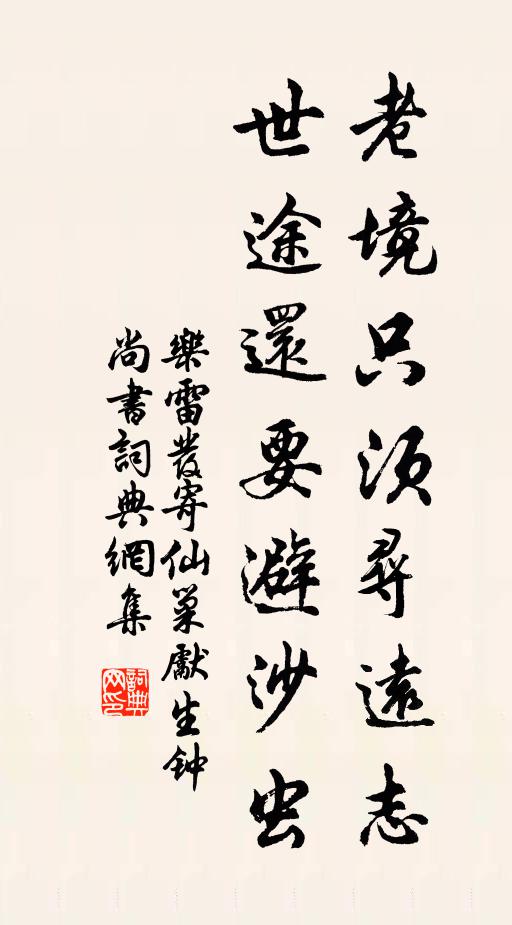 老境只須尋遠志
世途還要避沙虫
樂雷發寄仙巢獻生钟
尚書詞典網集
詞典网印